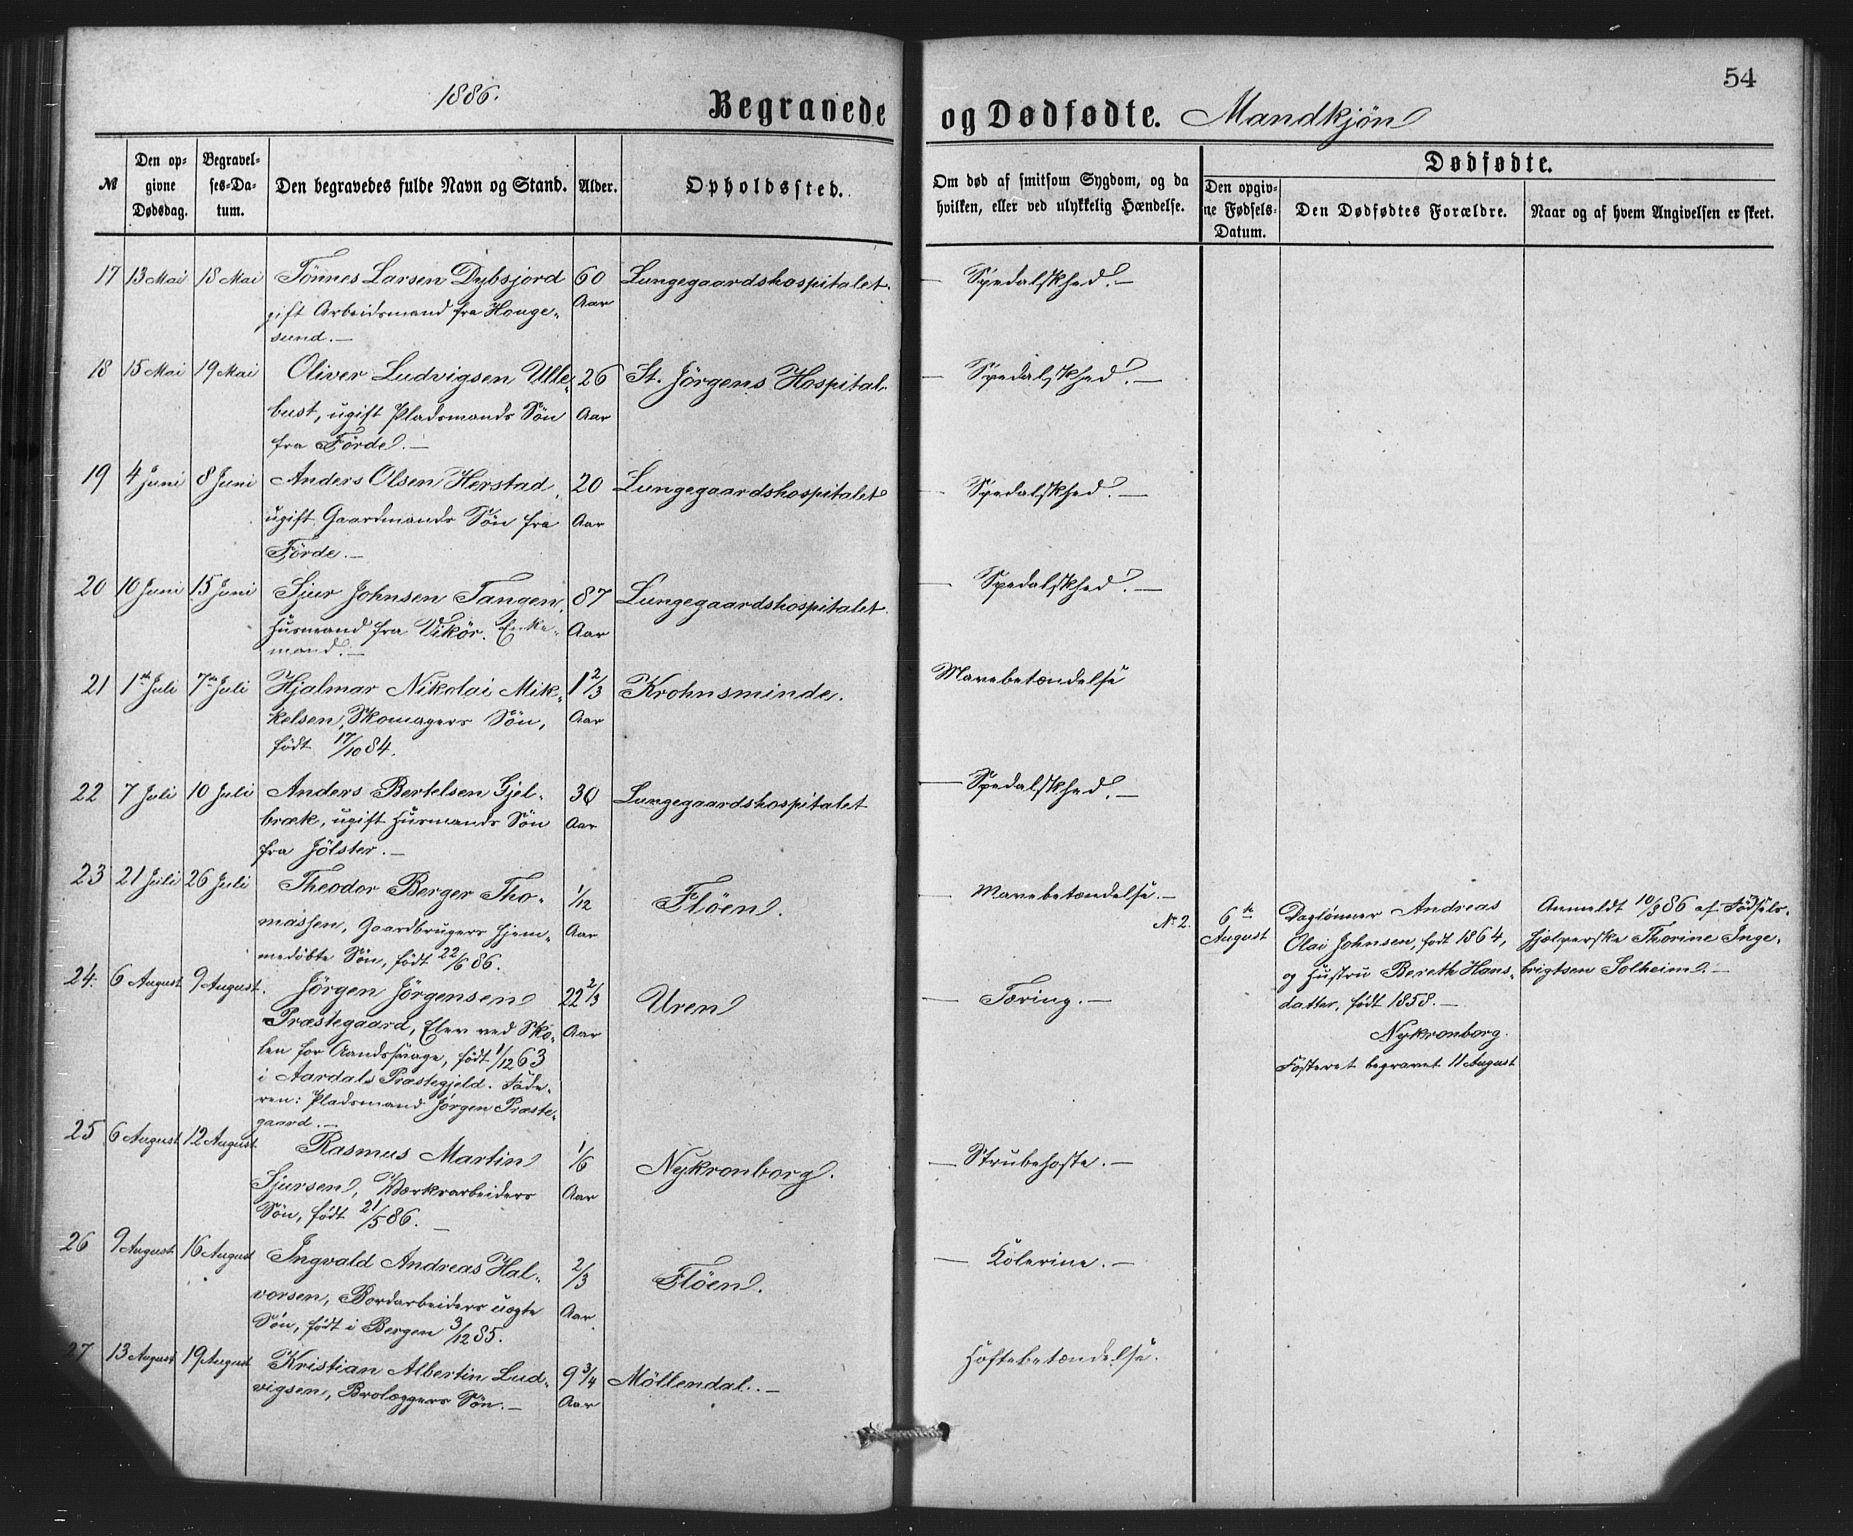 1886.
Begravede
№
Den op-
givne
Dødsdag.
Begravel-
ses-Da-
tum.
Den begravedes fulde Navn og Stand.
Alder.
Opholdssted.
17 13 Mai 18 Mai Tönnes Larsen Dybsjord 60 Lungegaardshospitalet.
gift Arbeidsmand fra Houge- Aar
sund.—
18 15 Mai 19 Mai Oliver Ludvigsen Ulle- 26 St. Jörgens Hospital.
bust, ugift Pladsmands Søn Aar
fra Förde.—
19 4 Juni 8 Juni Anders Olsen Herstad, 20 Lungegaardshospitalet
ugift Gaardmands Søn fra Aar
Förde.—
20 10 Juni 15 Juni Sjur Johnsen Tangen, 87 Lungegaardshospitalet.
Husmand fra Vikör. Enke- Aar
mand.—
21 1ste Juli 7de Juli Hjalmar Nikolai Mik- 1 2/3 Krohnsminde.
kelsen, Skomagers Søn, Aar
født 17/10 84.
22 7 Juli 10 Juli Anders Bertelsen Gjel- 30 Lungegaardshospitalet
bræk, ugift Husmands Søn Aar
fra Jölster.—
23 21 Juli 26 Juli Theodor Berger Tho- 1/12 Flöen.
massen, Gaardbrugers hjem- Aar
medöbte Søn, født 22/6 86.
24. 6 August 9 August. Jörgen Jörgensen 22 2/3 Uren
Præstegaard, Elev ved Sko- Aar
len for Aandssvage, født 1/12 63
i Aardals Præstegjeld. Fade-
ren: Pladsmand Jørgen Præste-
gaard.—
25 6 August 12 August Rasmus Martin 1/6 Nykronborg.
Sjursen, Værkarbeiders Aar
Søn, født 21/5 86.—
26 9 August 16 August Ingvald Andreas Hal- 2/3 Flöen.
vorsen, Bordarbeiders uægte Aar
Søn, født i Bergen 3/12 85.
27 13 August 19 August Kristian Albertin Lud- 9 3/4 Möllendal.—
vigsen, Brolæggers Søn.— Aar
54
og Dødfødte. Mandkjøn
Om død af smitsom Sygdom, og da
hvilken, eller ved ulykkelig Hændelse.
Dødfødte.
Den opgiv-
ne Fødsels-
Datum.
Den Dødfødtes Forældre.
Naar og af hvem Angivelsen er skeet.
— Spedalskhed.—
— Spedalskhed.—
— Spedalskhed.—
— Spedalskhed.—
Mavebetændelse
— Spedalskhed.—
— Mavebetændelse.—
№ 2. 6te August
Daglönner Andreas
Olai Johnsen, født 1864,
og Hustru Bereth Hans-
datter, født 1858.—
Nykronborg.
Fosteret begravet 11 August
Anmeldt 10/8 86 af Födsels-
hjælperske Thorine Inge-
brigtsen Solheim.—
— Tæring.—
— Strubehoste.—
— Kolerine.—
Hoftebetændelse.